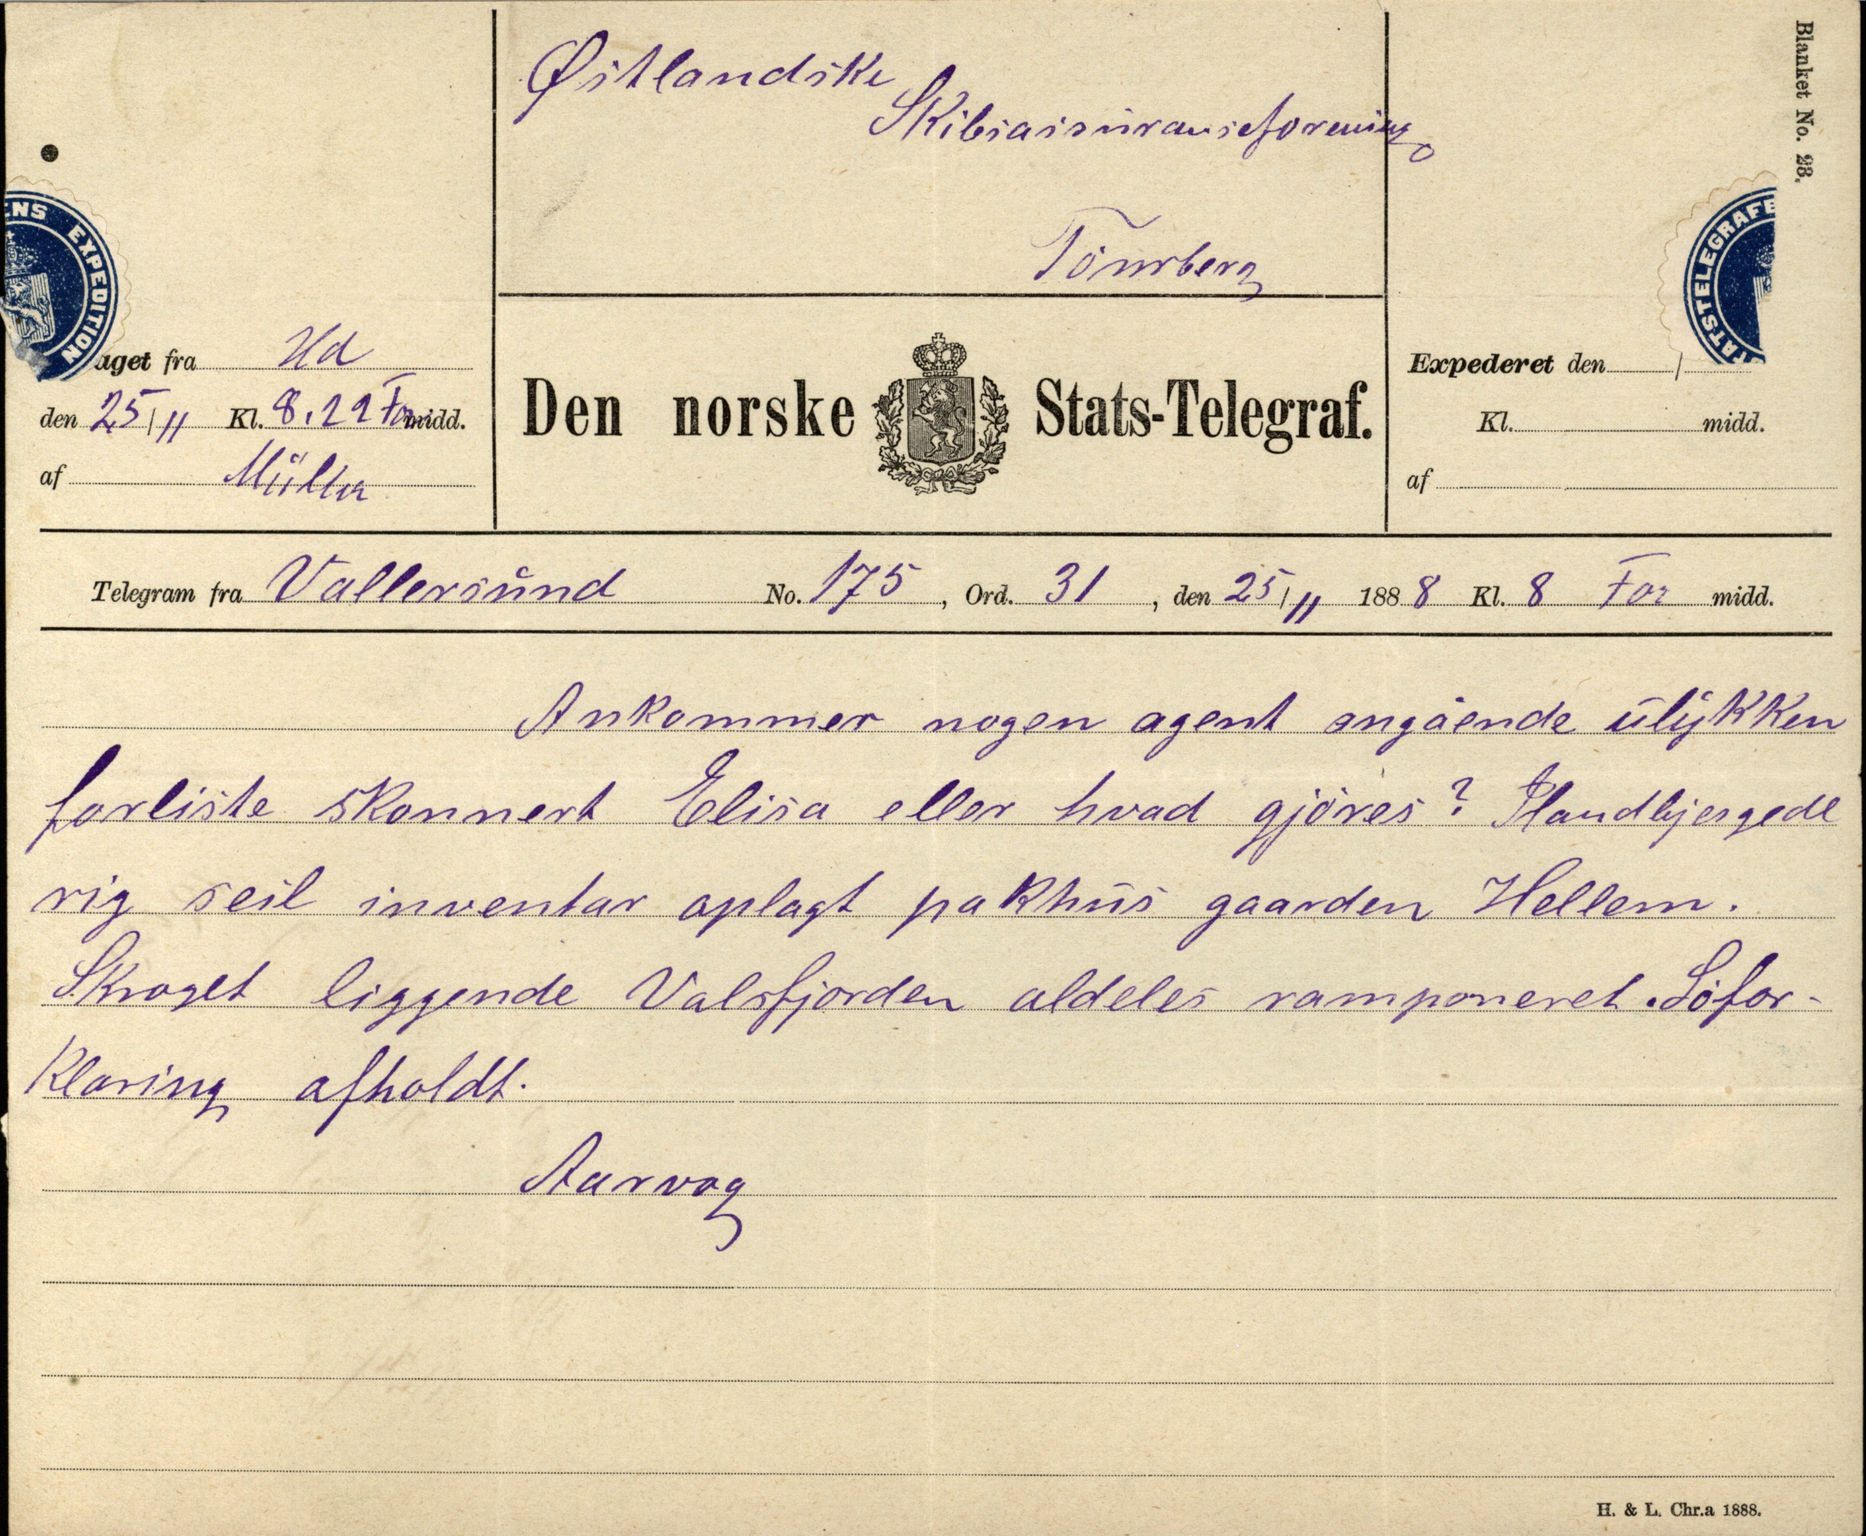 Blanket No. 23.
Østlandske
Skibsassuranseforening
Tönsberg
ENS EXPEDITION
STATSTELEGRAFE
aget fra Hd
den 25/11 Kl. 8.22 Formidd.
af Müller
Den norske Stats-Telegraf.
Expederet den /
Kl. midd.
af
Telegram fra Vallersund No. 175, Ord. 31, den 25/11 1888 Kl. 8 For midd.
Ankommer nogen agent angående ulykken
forliste skonnert Elisa eller hvad gjöres? Ilandbjergede
rig seil inventar oplagt pakhus gaarden Hellem.
Skroget liggende Valsfjorden aldeles ramponeret. Söfor-
klaring afholdt.
Aarvog
H. & L. Chr.a 1888.